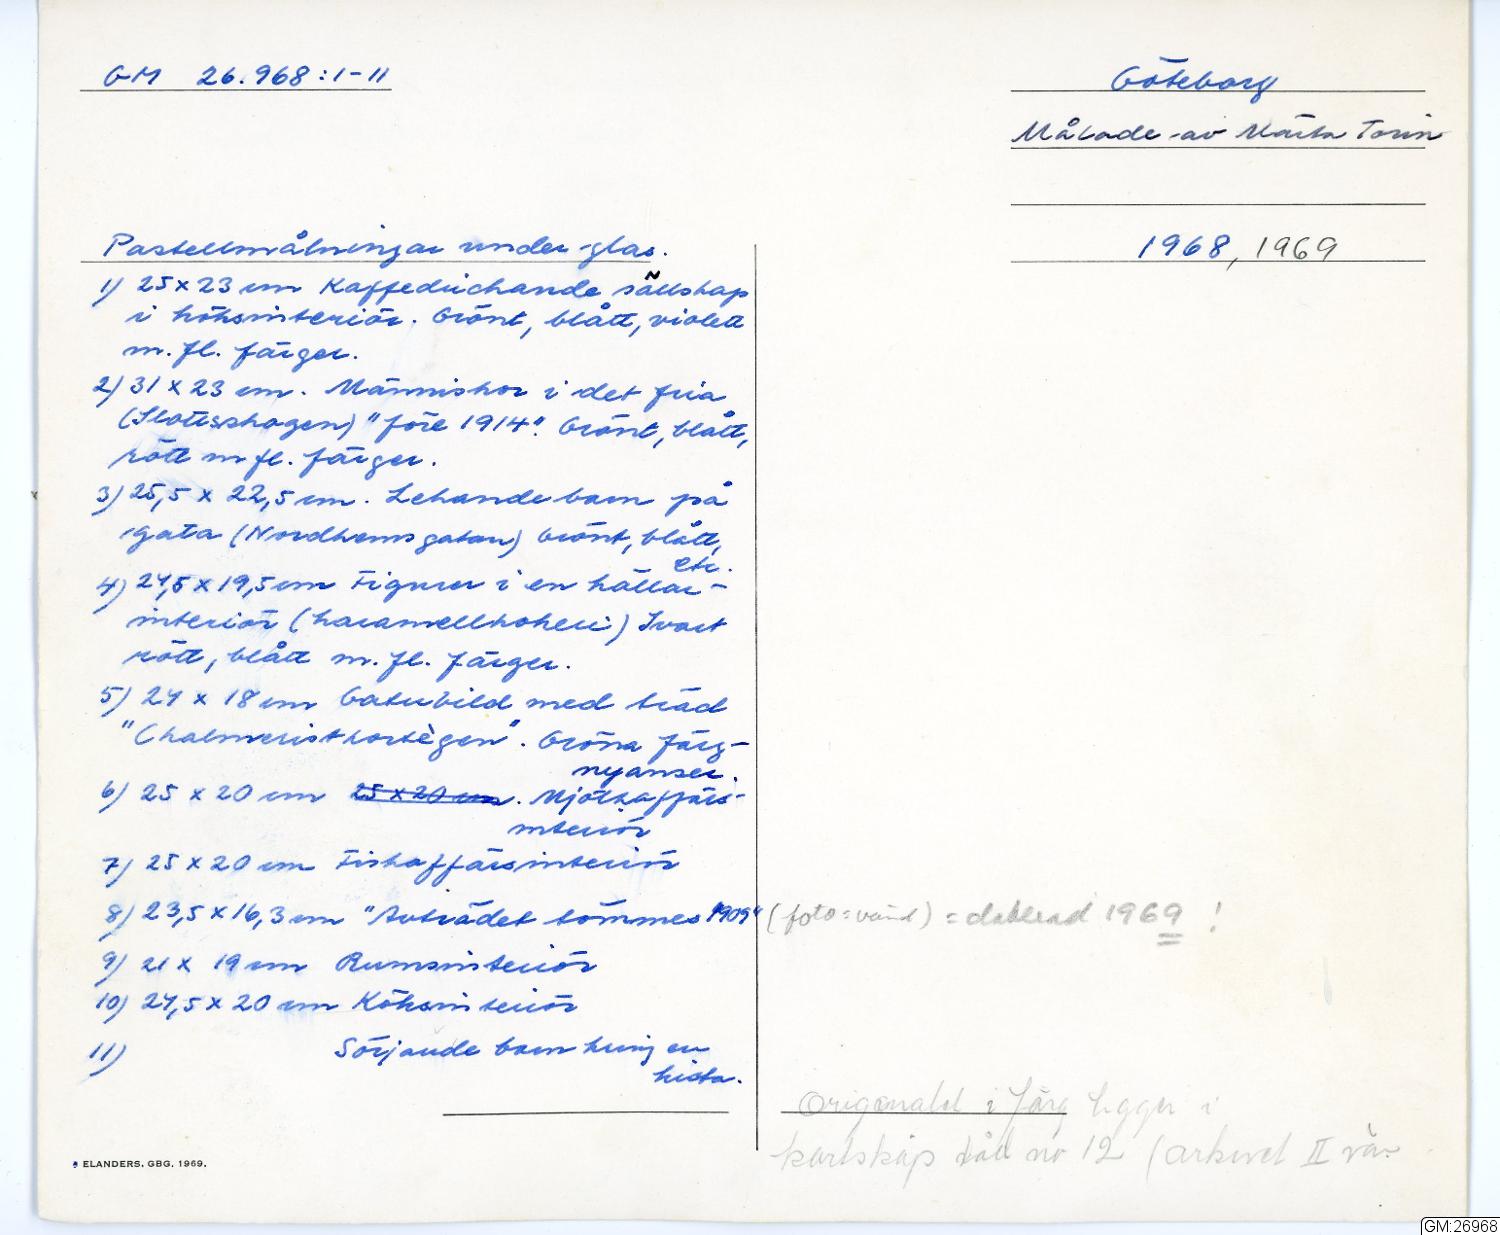 GM 26.968:1-11
Göteborg
Målade av Märta Torin
1968, 1969
Pastellmålningar under glas.
1) 25 x 23 cm Kaffedrickande sällskap
i köksinteriör. Grönt, blått, violett
m.fl. färger.
2) 31 x 23 cm. Människor i det fria
(Slottsskogen) "före 1914". Grönt, blått,
rött m fl. färger.
3) 25,5 x 22,5 cm. Lekande barn på
gata (Nordhemsgatan) Grönt, blått,
etc.
4) 24,5 x 19,5 cm Figurer i en källar-
interiör (karamellkokeri) Svart
rött, blått m.fl. färger.
5) 24 x 18 cm Gatubild med träd
"Chalmeristkortègen". Gröna färg-
nyanser.
6) 25 x 20 cm 25 x 20 cm. Mjölkaffärs-
interiör
7) 25 x 20 cm Fiskaffärsinteriör
8) 23,5 x 16,3 cm "Avträdet tömmes 1909" (foto = vänd) = daterad 1969 !
9) 21 x 19 cm Rumsinteriör
10) 24,5 x 20 cm Köksinteriör
11) Sörjande barn kring en
kista.
Originalet i färg ligger i
kartskåp låd nr 12 (arkivet II
ELANDERS, GBG. 1969.
GM:26968